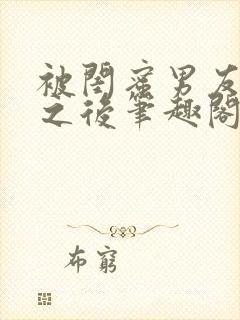 被閨蜜男友
之後筆趣閣
布窮